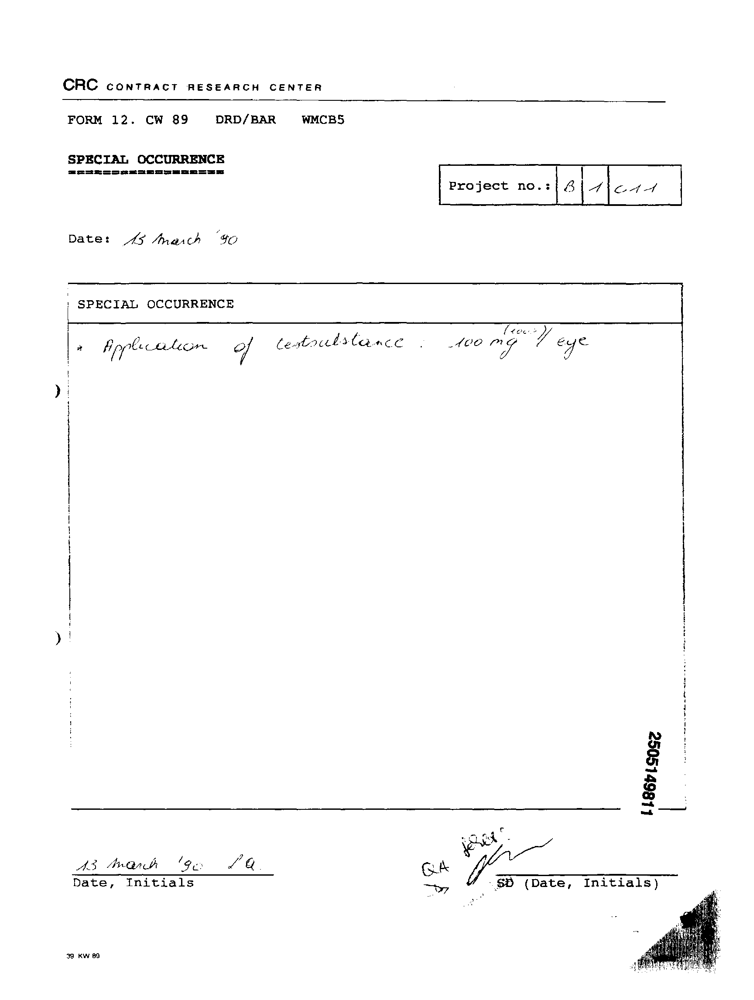 CRC CONTRACT RESEARCH CENTER
FORM 12. CW 89 DRD/BAR WMCB5
SPECIAL OCCURRENCE
Project no.: B 1 011
Date: 13 march '90
SPECIAL OCCURRENCE
Application of testsubstance : 100 mg / eye
2505149811
13 march '90
QA
Date, Initials SD (Date, Initials)
39 KW 89